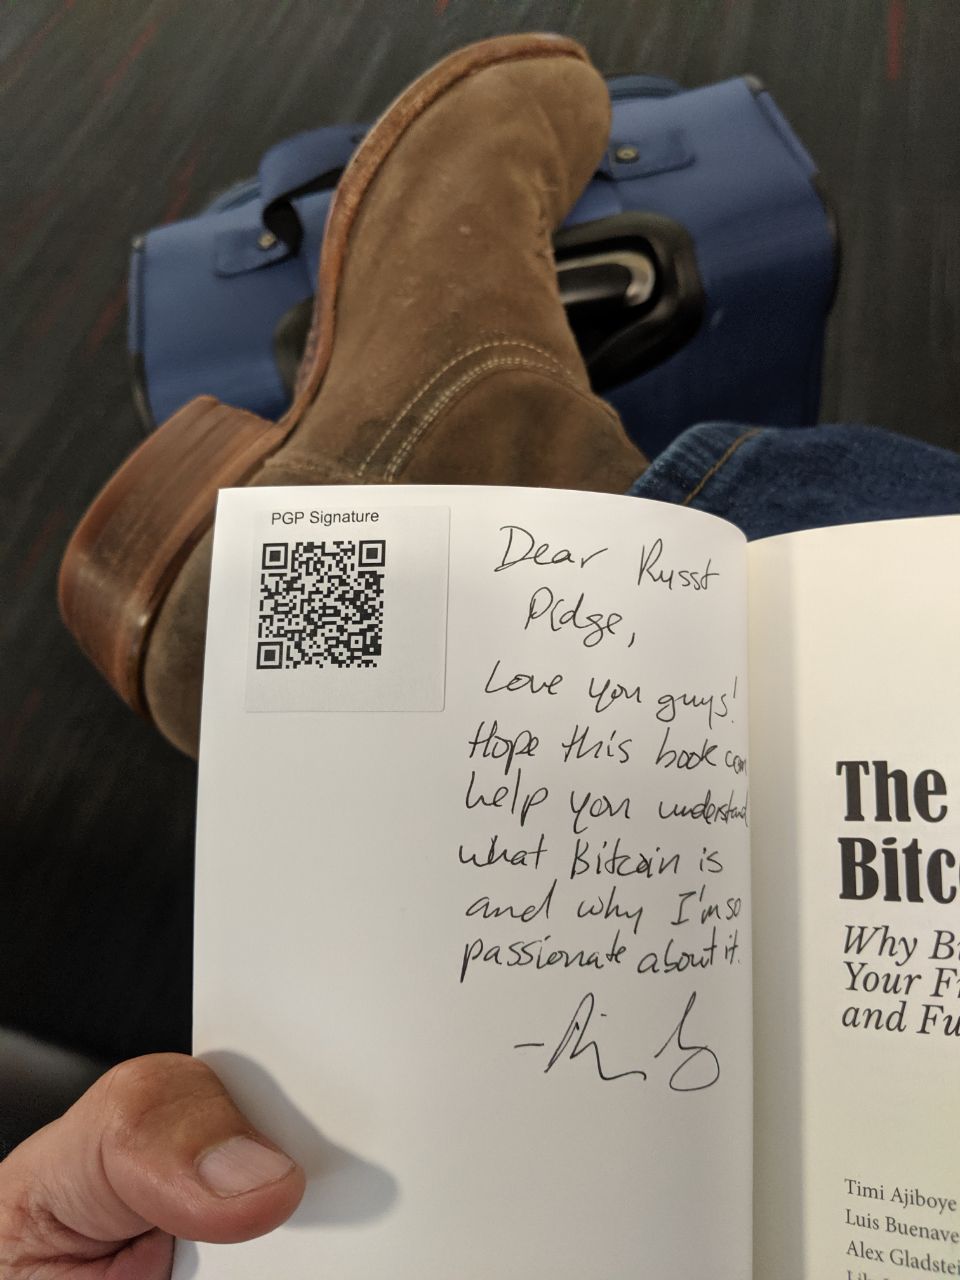 PGP Signature
Dear Russ +
Pidge,
Love you guys!
Hope this book can
help you understand
what Bitcoin is
and why I'm so
passionate about it.
The
Bitc
Why Bi
Your F
and Fu
Timi Ajiboye
Luis Buenave
Alex Gladstei